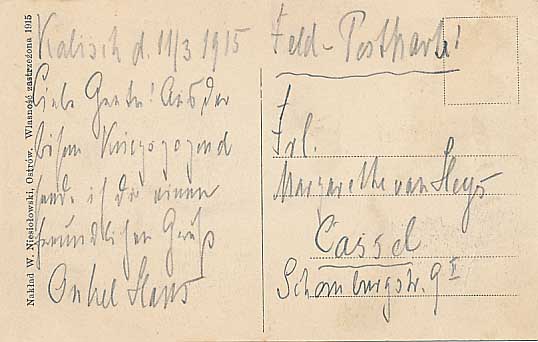 Kalisch d. 11/3 1915
Liebe Grete! Aus der
Kriegsgegend
sende ich dir einen
freundlichen Gruß
Onkel Hans
Feld-Postkarte!
Frl.
Margarethe van
Cassel
Schomburgstr. 9 II
Nakład W. Niesiołowski, Ostrów. Własność zastrzeżona 1915